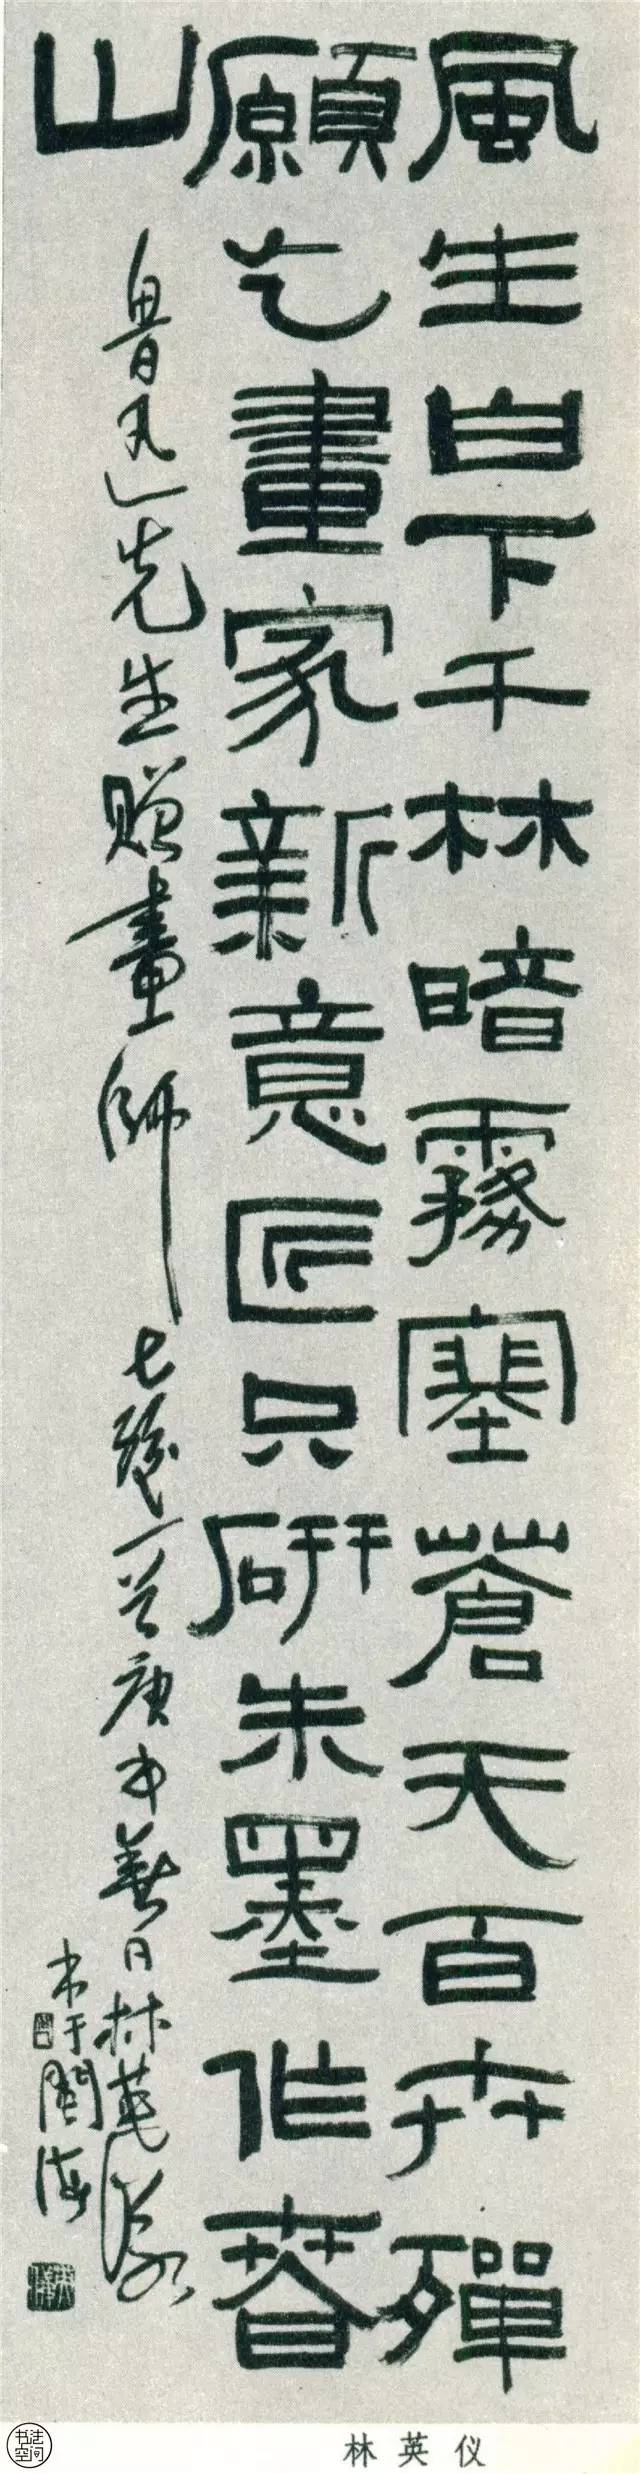 風生白下千林暗霧塞蒼天百卉殫
願乞畫家新意匠只研朱墨作春
山
魯迅先生贈畫師七絕一首庚申春日林英儀
書于閩海
林英仪
书法空间